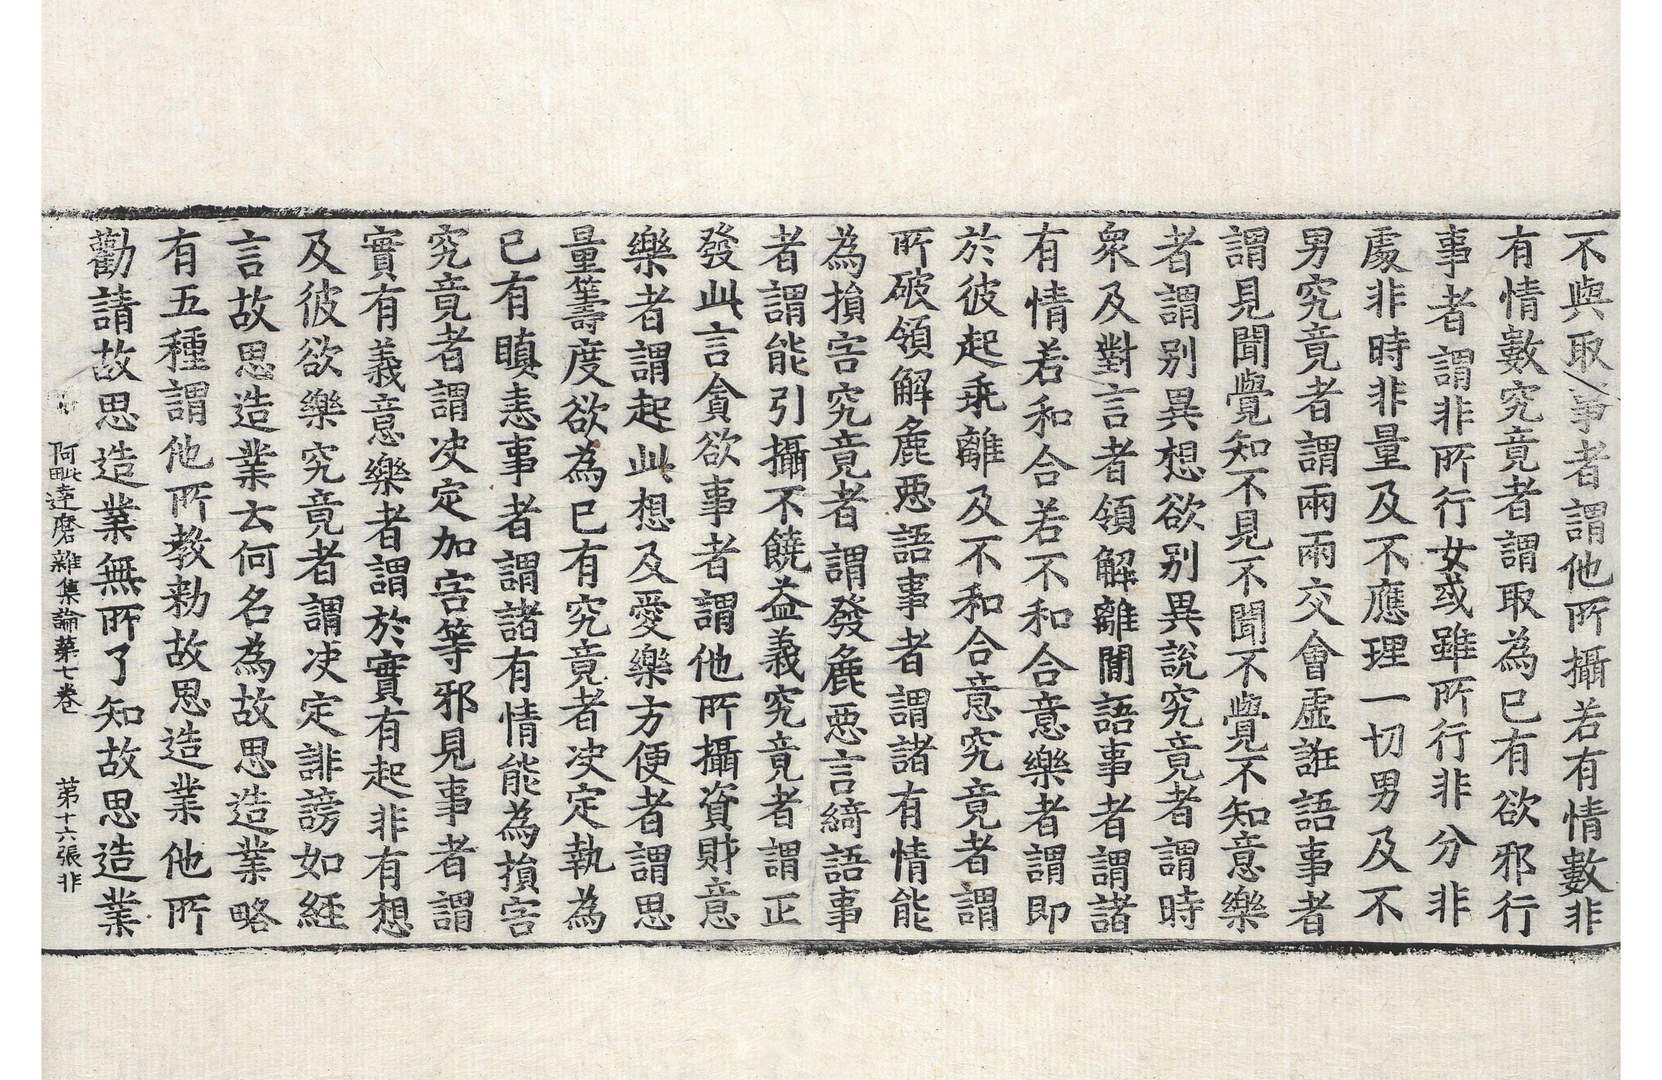 不與取事者謂他所攝若有情數非
有情數究竟者謂取為已有欲邪行
事者謂非所行女或雖所行非分非
處非時非量及不應理一切男及不
男究竟者謂兩兩交會虛誑語事者
謂見聞覺知不見不聞不覺不知意樂
者謂別異想欲別異說究竟者謂時
衆及對言者領解離間語事者謂諸
有情若和合若不和合意樂者謂即
於彼起乖離及不和合意究竟者謂
所破領解麁惡語事者謂諸有情能
為損害究竟者謂發麁惡言綺語事
者謂能引攝不饒益義究竟者謂正
發此言貪欲事者謂他所攝資財意
樂者謂起此想及愛樂方便者謂思
量籌度欲為已有究竟者决定執為
已有瞋恚事者謂諸有情能為損害
究竟者謂决定加害等邪見事者謂
實有義意樂者謂於實有起非有想
及彼欲樂究竟者謂决定誹謗如經
言故思造業云何名為故思造業略
有五種謂他所教勑故思造業他所
勸請故思造業無所了知故思造業
阿毗達磨雜集論苐七卷 苐十六張 非